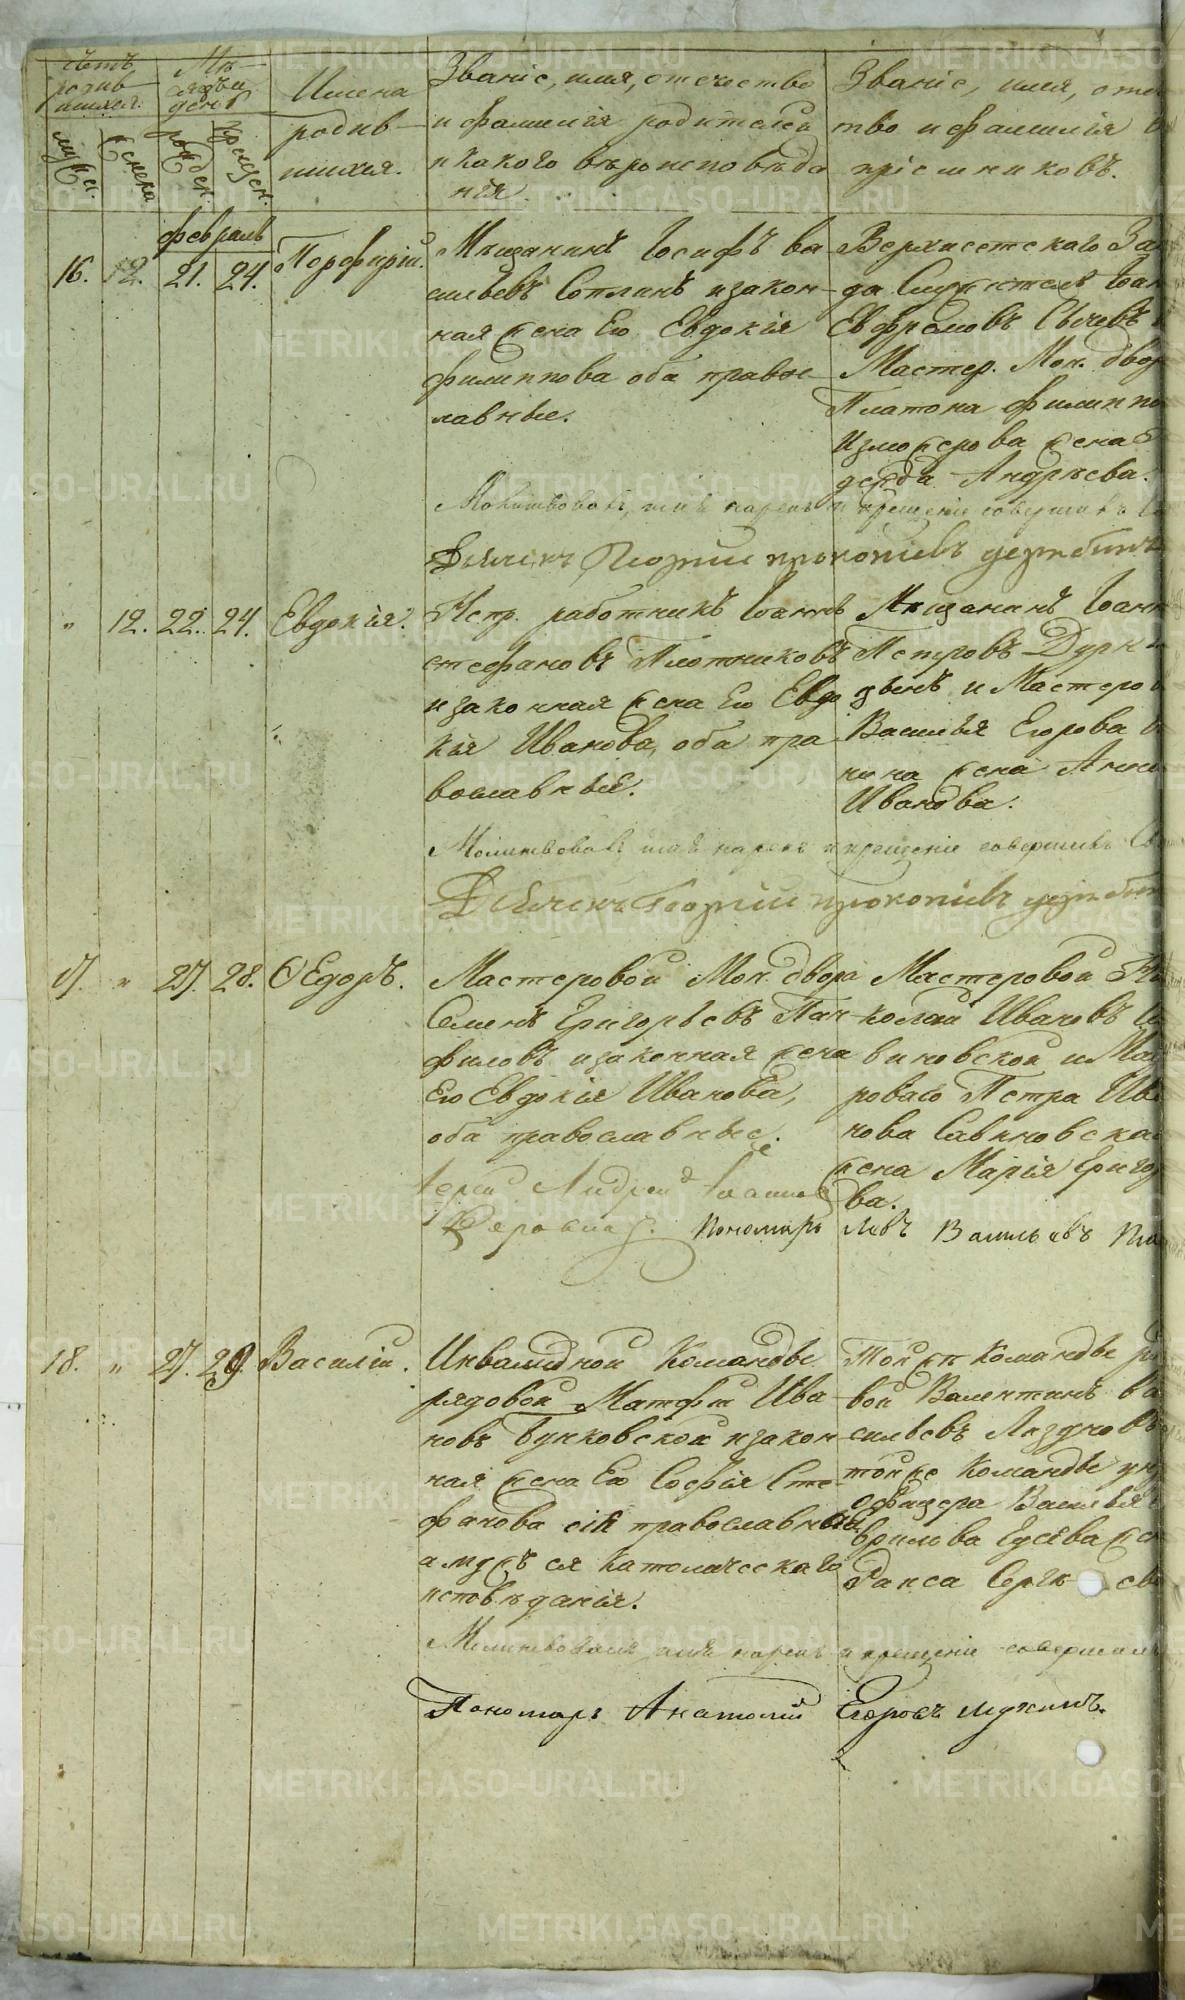 Счетъ родив-шихся.
Мѣ-сяцъ и день
Имена родив-шихся.
Званіе, имя, отчество
и фамилія родителей
и какого вѣроисповѣда
нія.
Званіе, имя, отче
тво и фамилія
пріемниковъ.
мужес.
женска
рожден.
крещен.
февраль
16. 12. 21. 24. Порфирій.
Мѣщанинъ Іосифъ Ва
сильевъ Соплинъ и закон-
ная жена Его Евдокія
филиппова оба право
славные.
Верхисетскаго За
да Служитель Іоан
Евфремовъ Сычевъ
Мастер. Мон. двор
Платона филиппо
Изможерова жена
Андрѣева.
Молитвовалъ, имя нарекъ и крещеніе совершилъ
Дьячекъ Георгій прокопіевъ дерябинъ
" 12. 22. 24. Евдокія.
Непр. работникъ Іоаннъ
стефановъ Плотниковъ
и законная жена Его Евдо
кія Иванова, оба пра
вославные.
Мѣщанинъ Іоанн
Петровъ
и Мастеро
Василья Егорова
жена Анн
Иванова.
Молитвовалъ имя нарекъ и крещеніе совершилъ
Дьячекъ Георгій прокопіевъ дерябин
17. " 27. 28. Ѳедоръ.
Мастеровой Мон. двора
Семенъ Григорьевъ Пан-
филовъ и законная жена
Его Евдокія Иванова,
оба православные.
Мастеровой Ни
колай Ивановъ
виновской и Мас
роваго Петра Ива
нова Савиновска
жена Марія Григор
ва.
Іерей Андрей Іоанновъ
Пономарь Левъ Васильевъ
18. " 27. 29. Василій.
Инвалидной Команды
рядовой Матфій Ива
новъ Бунковской и закон-
ная жена Его Софія Сте-
фанова сія православная
а мужъ ея католическаго
исповѣданія.
той же Команды ря
вой Валентинъ Ва
сильевъ Лязуновъ
той же Команды ун
офицера Василья
врилова Гусева же
Раиса Сергѣ ев
Молитвовалъ имя нарекъ и крещеніе совершилъ
Пономарь Анатолій Егоровъ
METRIKI.GASO-URAL.RU